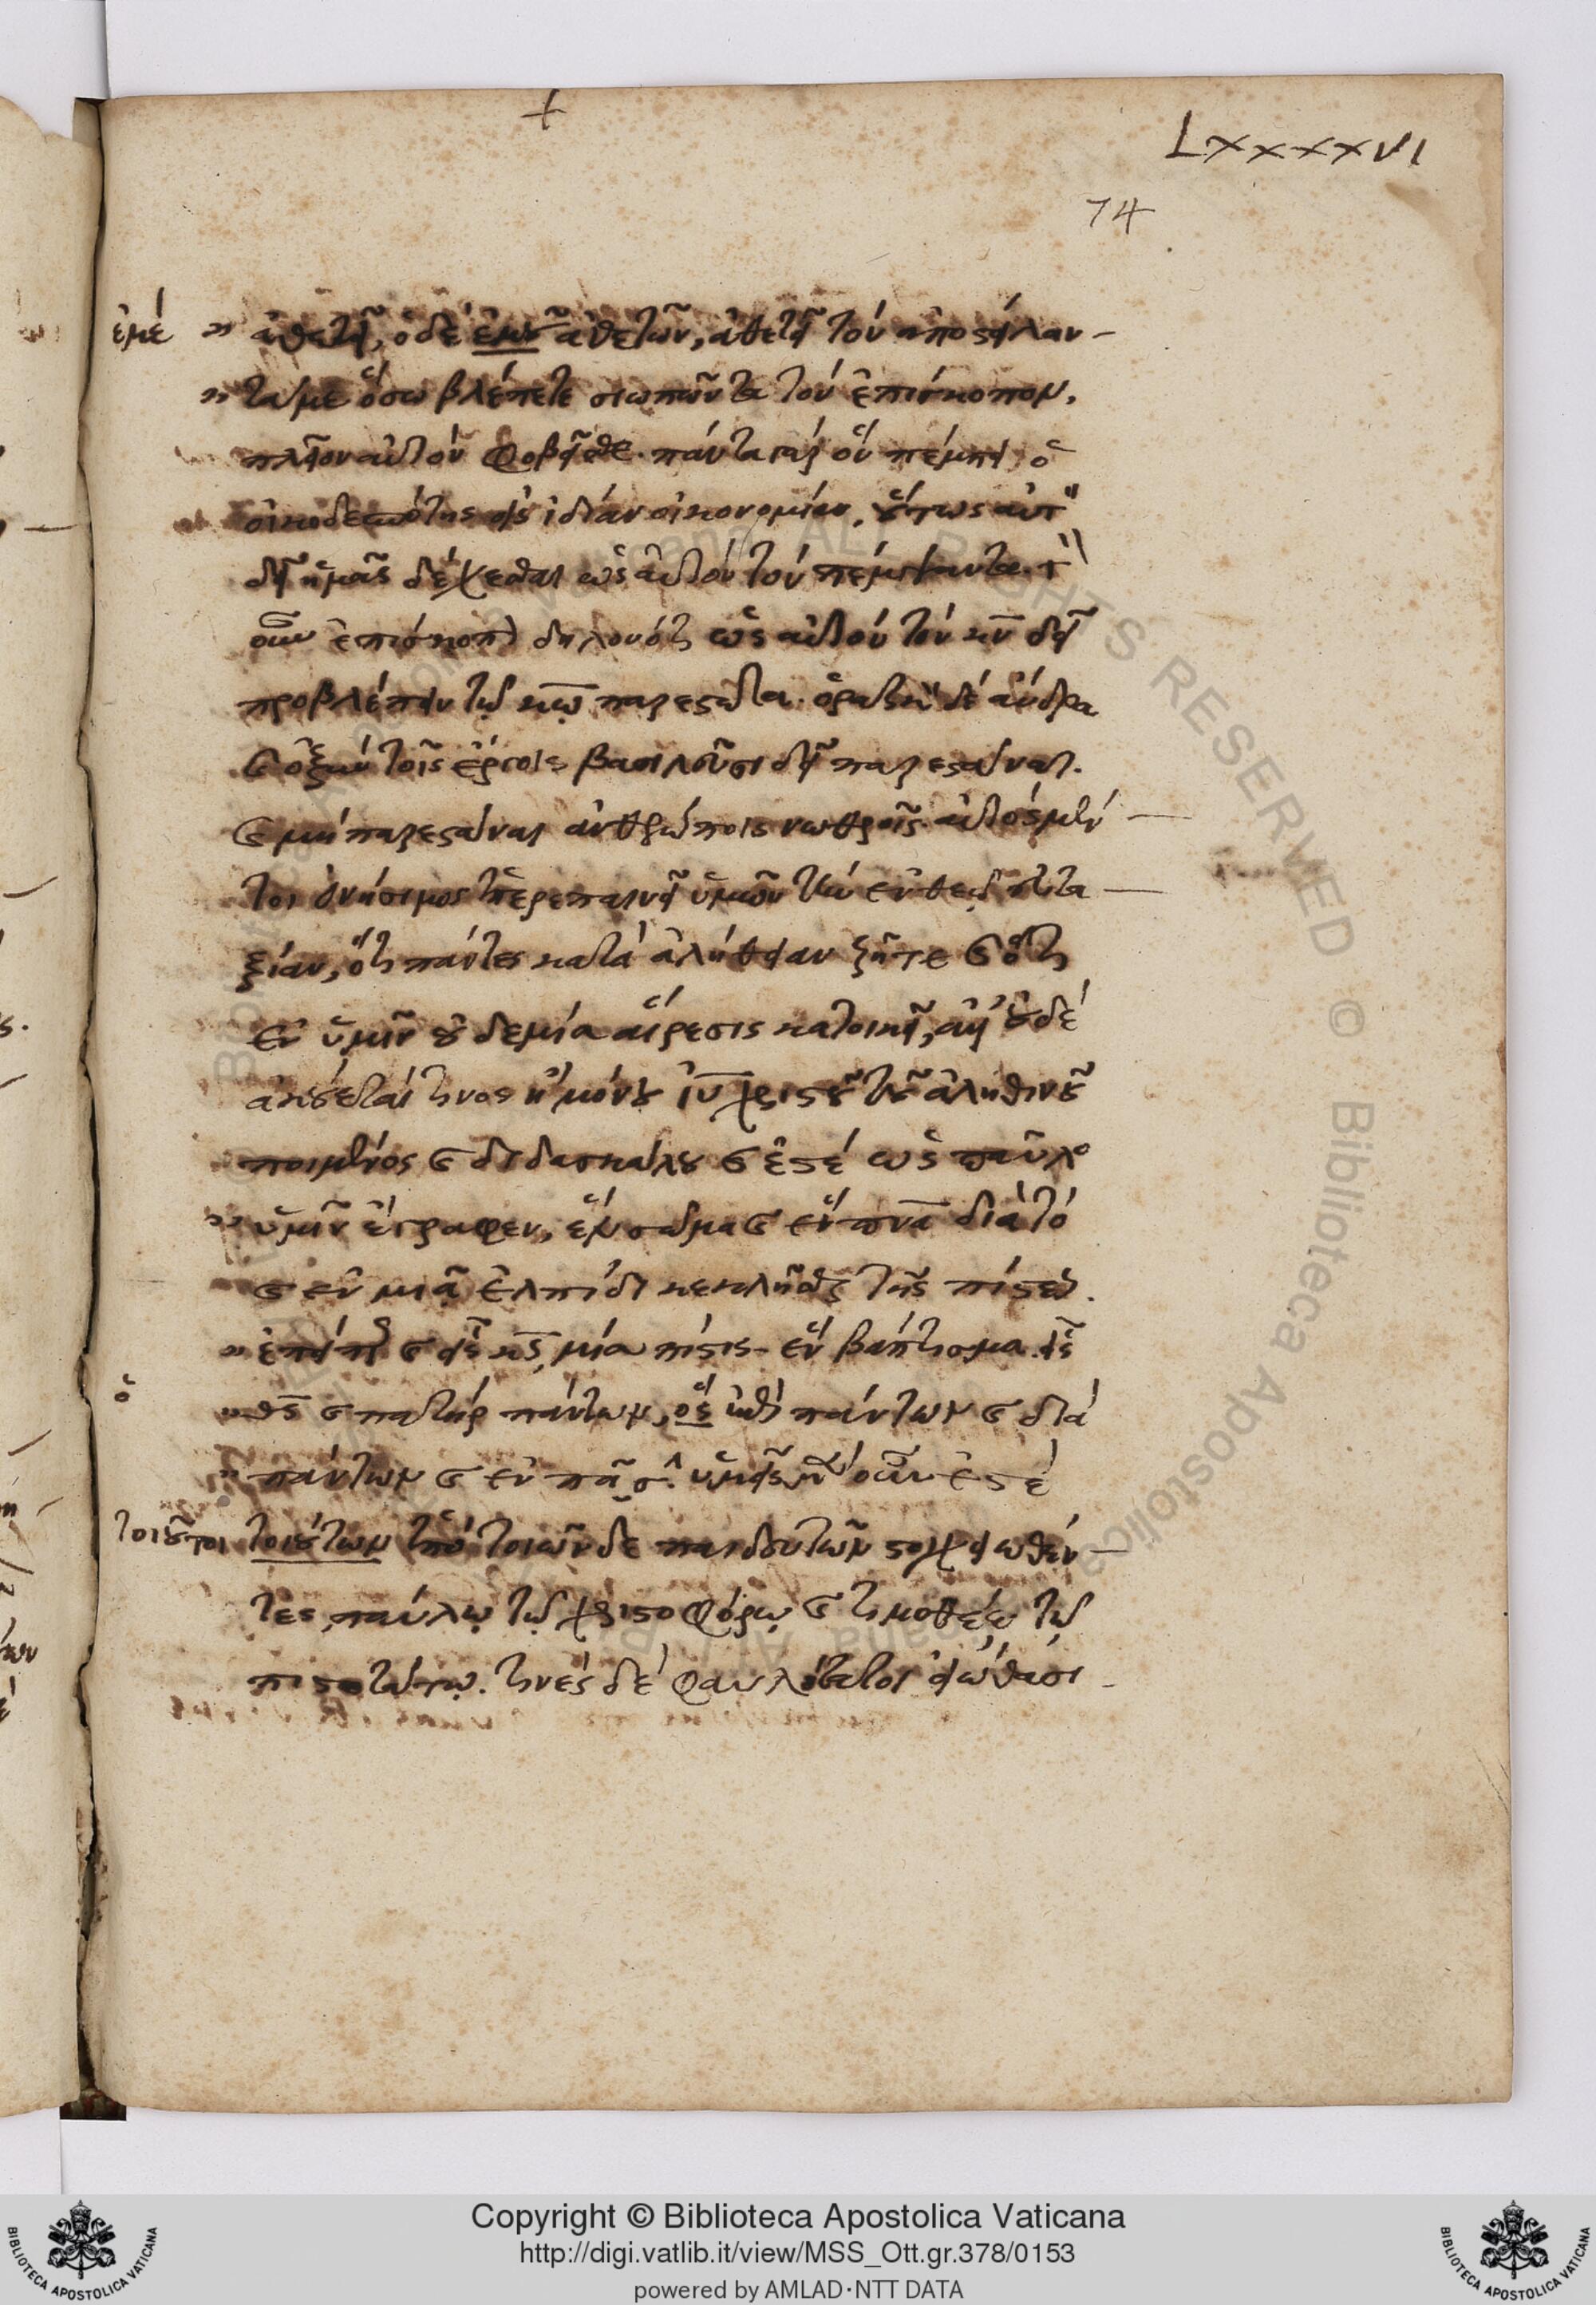 +
LXXXXVI
74
ἐμέ » ἀθετεῖ, ὁ δὲ ἐμοῦ ἀθετῶν, ἀθετεῖ τὸν ἀποστείλαν-
» τά με ὅσω βλέπετε σιωπῶντα τὸν ἐπίσκοπον,
πλεῖον αὐτὸν φοβεῖσθε. πάντα γὰρ ὃν πέμπει ὁ
οἰκοδεσπότης εἰς ἰδίαν οἰκονομίαν, οὕτως αὐτ
δεῖ ἡμᾶς δέχεσθαι ὡς αὐτὸν τὸν πέμψαντα. τ
οὖν ἐπίσκοπ δηλονότι ὡς αὐτὸν τὸν κν δεῖ
προβλέπειν τῷ κῳ παρεστῶτα. ὁρατικὸν δὲ ἄνδρα
καὶ ὀξὺν τοῖς ἔργοις βασιλεῦσι δεῖ παρεστάναι.
καὶ μὴ παρεστάναι ἀνθρώποις νωθροῖς. αὐτὸς μέν
τοι ὀνήσιμος ὑπερεπαινεῖ ὑμῶν τὴν ἐν θεῷ εὐτα
ξίαν, ὅτι πάντες κατὰ ἀλήθειαν ζῆτε καὶ ὅτι
ἐν ὑμῖν οὐδεμία αἵρεσις κατοικεῖ, ἀλλ' οὐδὲ
ἀκούετέ τινος ἢ μόνου ἰυ χριστοῦ τοῦ ἀληθινοῦ
ποιμένος καὶ διδασκάλου καὶ ἐστὲ ὡς παῦλο
» ὑμῖν ἔγραφεν, ἓν σῶμα καὶ ἓν πνα διὰ τὸ
καὶ ἐν μιᾷ ἐλπίδι κεκλῆσθαι τῆς πίστεως.
» ἐπείπερ καὶ εἷς κς, μία πίστις ἓν βάπτισμα. εἷς
ὁ » θς καὶ πατὴρ πάντων, ὃς ἐπὶ πάντων καὶ διὰ
» πάντων καὶ ἐν πᾶσι. ὑμεῖς μὲν οὖν ἐστὲ
τοιοῦτοι τοιούτων ὑπὸ τοιῶνδε παιδευτῶν στοιχειωθέν-
τες, παύλῳ τῷ χριστοφόρῳ καὶ τιμοθέῳ τῷ
πιστοτάτῳ. τινὲς δὲ φαυλότατοι εἰώθασι
Copyright © Biblioteca Apostolica Vaticana
http://digi.vatlib.it/view/MSS_Ott.gr.378/0153
powered by AMLAD·NTT DATA
BIBLIOTECA APOSTOLICA VATICANA
BIBLIOTECA APOSTOLICA VATICANA